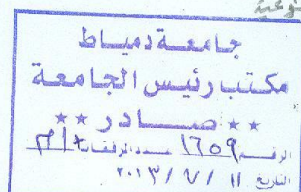 جامعة دمياط
مكتب رئيس الجامعة
** صادر **
الرقم ١٦٥٩ عدد المرفقات
التاريخ ١١ / ٧ / ٢٠١٣